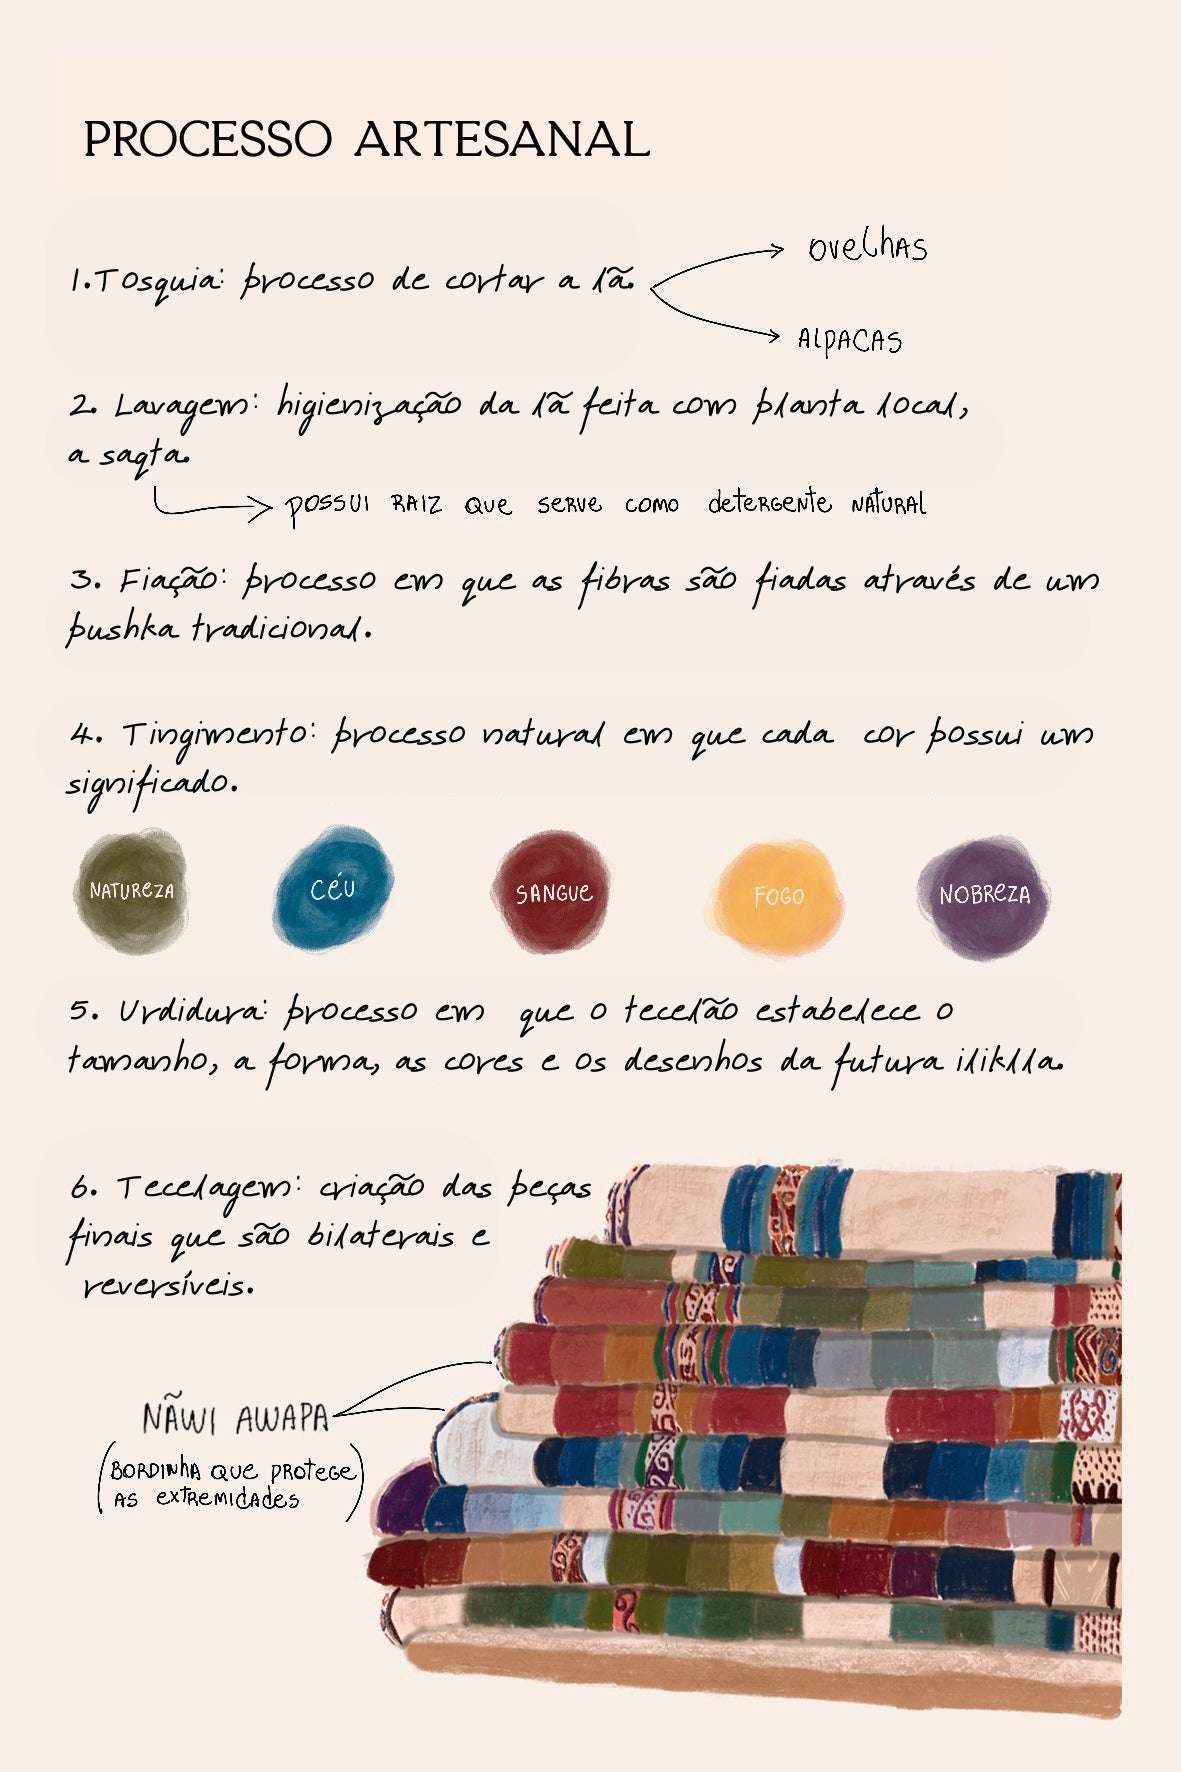 PROCESSO ARTESANAL
1. Tosquia: processo de cortar a lã.
OVELHAS
ALPACAS
2. Lavagem: higienização da lã feita com planta local,
a saqta.
POSSUI RAIZ QUE SERVE COMO DETERGENTE NATURAL
3. Fiação: processo em que as fibras são fiadas através de um
pushka tradicional.
4. Tingimento: processo natural em que cada cor possui um
significado.
NATUREZA
CÉU
SANGUE
FOGO
NOBREZA
5. Urdidura: processo em que o tecelão estabelece o
tamanho, a forma, as cores e os desenhos da futura iliklla.
6. Tecelagem: criação das peças
finais que são bilaterais e
reversíveis.
NÃWI AWAPA
(BORDINHA QUE PROTEGE
AS EXTREMIDADES)